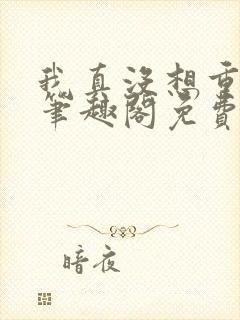 我真没想重
笔趣阁免费
暗夜